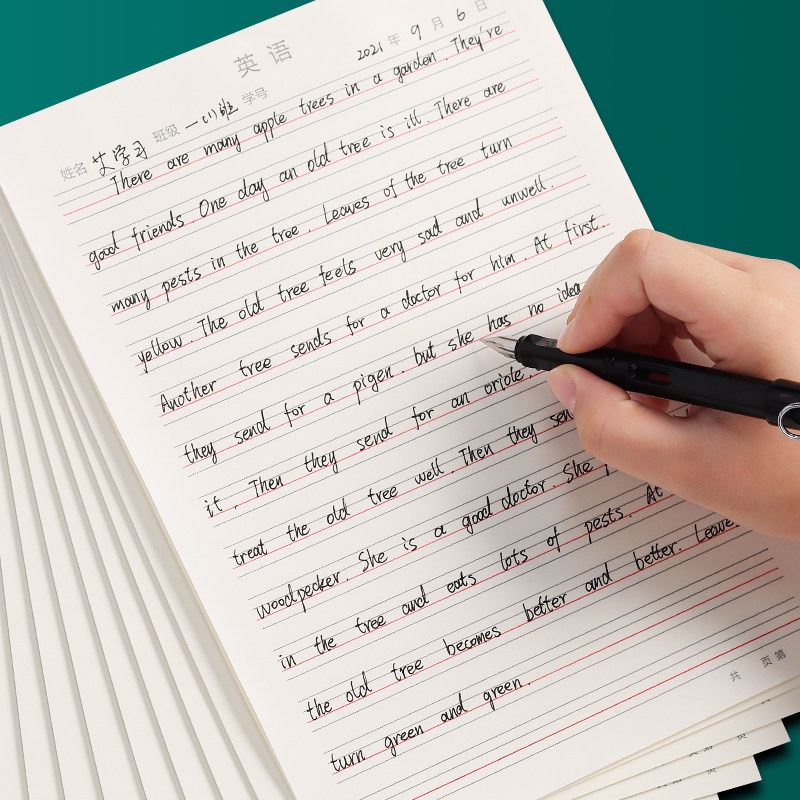 英语
2021 年 9 月 6 日
姓名 艾学习 班级 一(1)班 学号
There are many apple trees in a garden. They're
good friends. One day an old tree is ill. There are
many pests in the tree. Leaves of the tree turn
yellow. The old tree feels very sad and unwell.
Another tree sends for a doctor for him. At first.
they send for a pigen. but she has no idea
it. Then they send for an oriole.
treat the old tree well. Then they sen
woodpecker. She is a good doctor. She
in the tree and eats lots of pests. At
the old tree becomes better and better. Leaves
turn green and green.
共 页 第